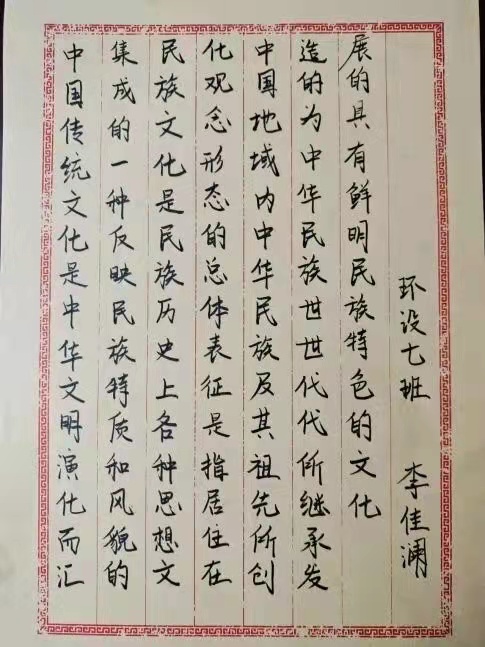 中国传统文化是中华文明演化而汇
集成的一种反映民族特质和风貌的
民族文化是民族历史上各种思想文
化观念形态的总体表征是指居住在
中国地域内中华民族及其祖先所创
造的为中华民族世世代代所继承发
展的具有鲜明民族特色的文化
环设七班 李佳澜